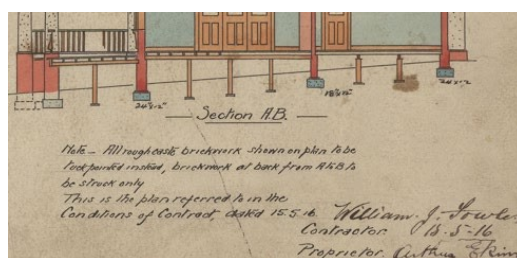 24"x12"
18"x12"
24"x12"
Section A.B.
Note – All roughcasts brickwork shown on plan to be
Tuck pointed instead, brickwork at back from A to B to
be struck only
This is the plan referred to in the
Conditions of Contract, dated 15.5.16
William. J. Fowler
Contractor 15-5-16
Proprietor. Arthur